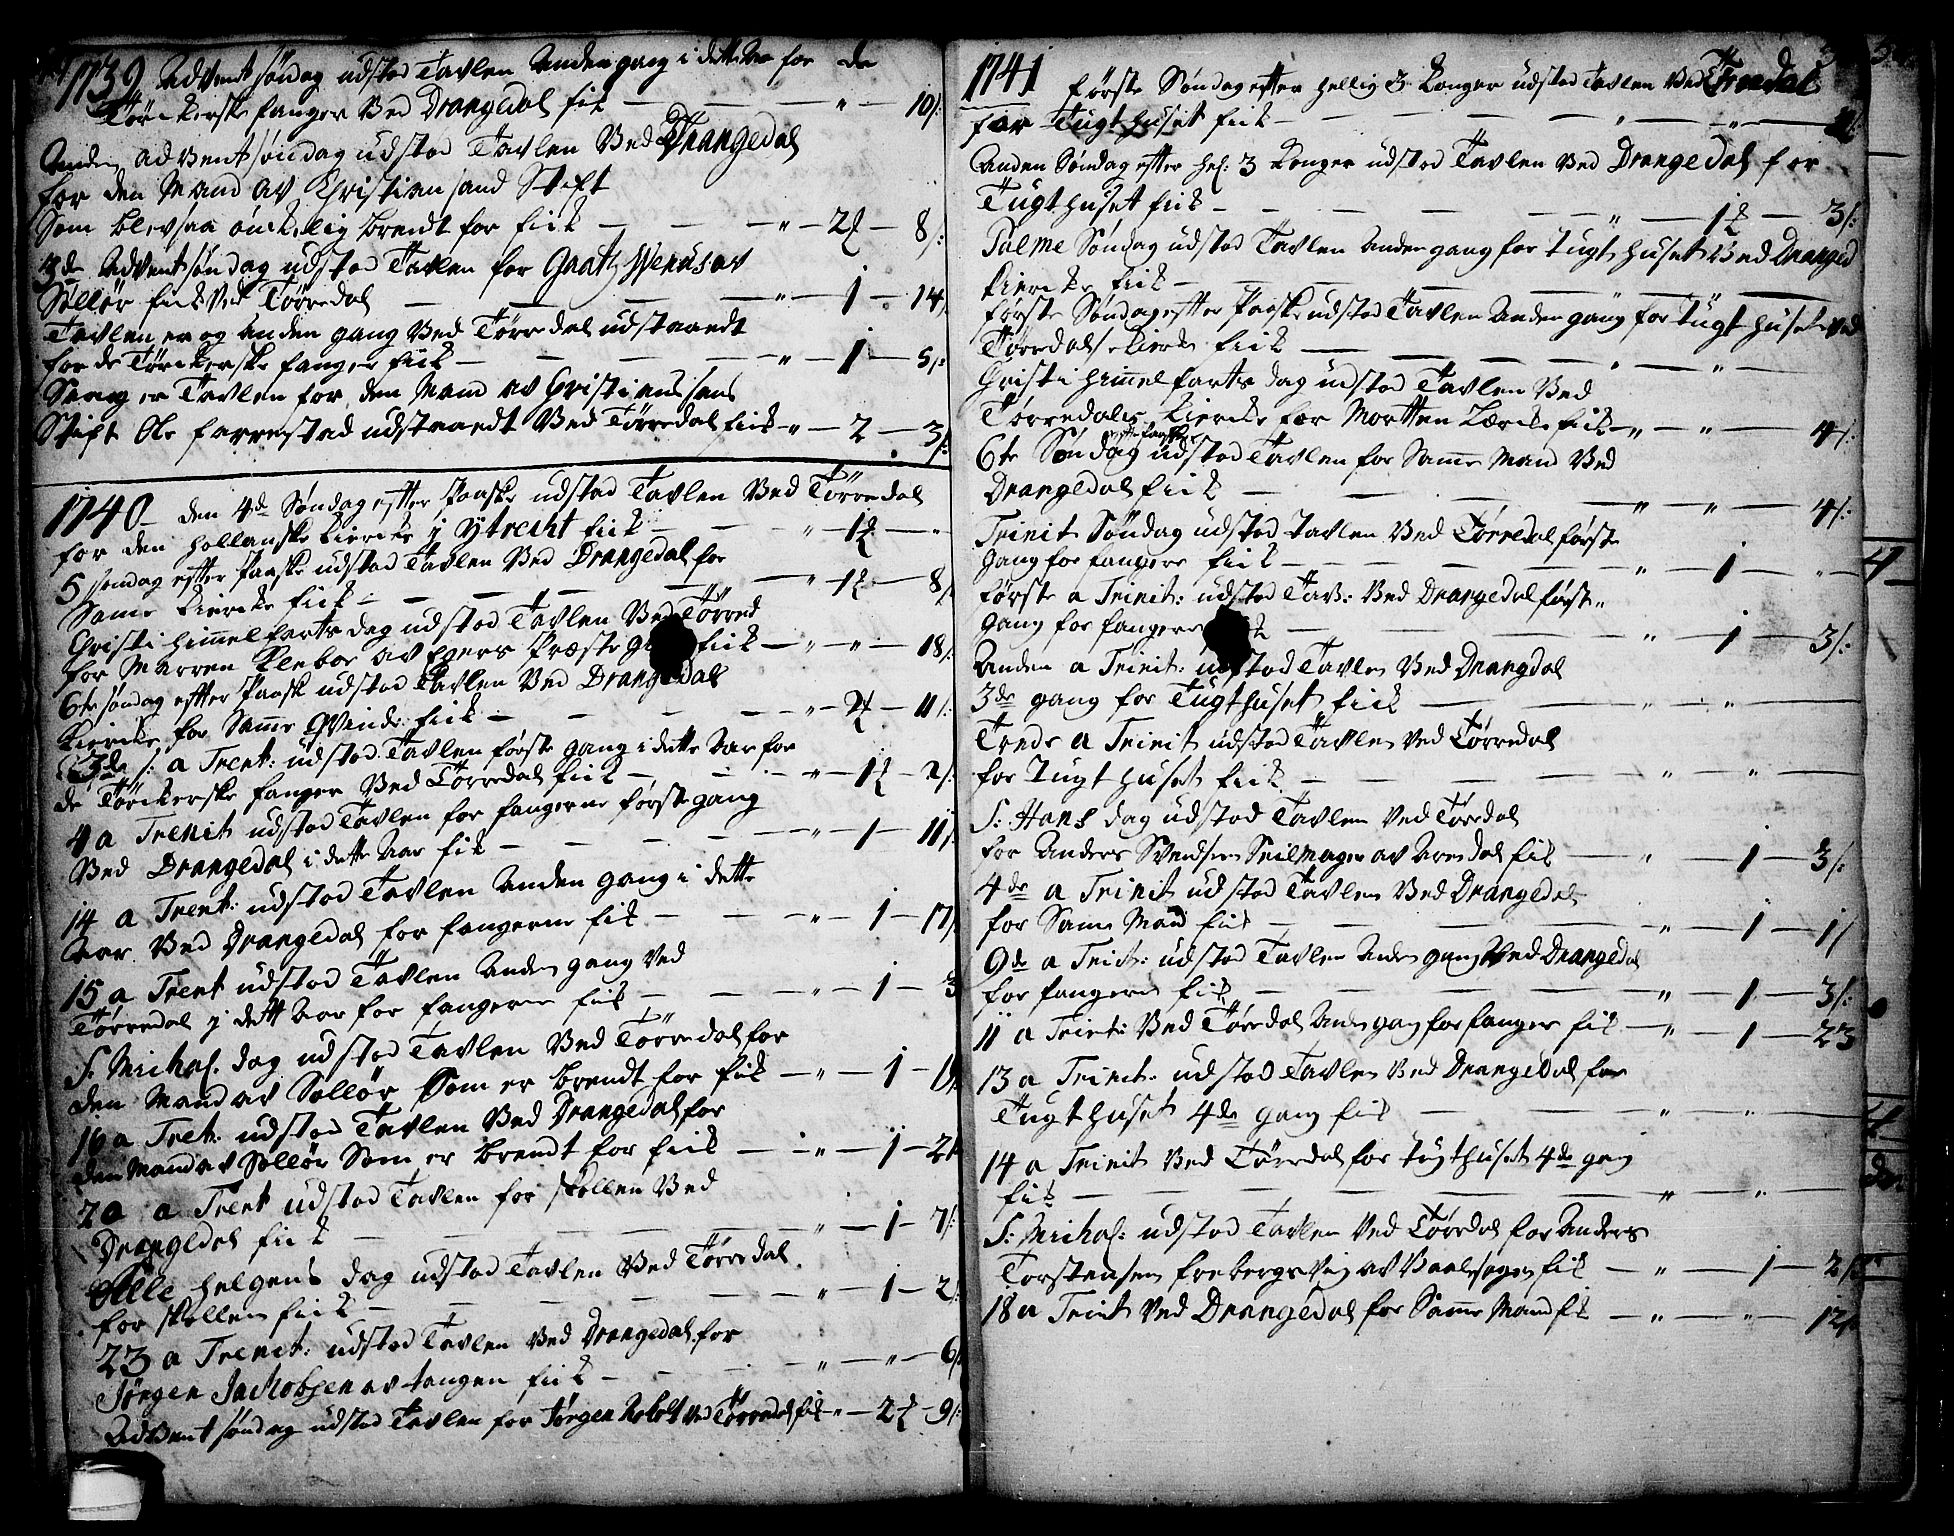 1739 Advent søndag udstod Tavlen Anden gang i dette Aar for de
Tørckerske fanger Ved Drangedal fik — — — " — 10/:
Anden advent søndag udstod Tavlen Ved Drangedal
for den Mand av Christiansand Stift
Som blev saa ønckelig brendt for fick — — — " — 2 — 8/:
3de Advent søndag udstod Tavlen for
Sollør fick Ved Tørredal — — — " — 1 — 14
Tavlen er og Anden gang Ved Tørredal udstaaedt
for de Tørckerske fanger fick — — — " — 1 — 5/:
er Tavlen for den Mand av Christians sans
Stift Ole farrestad udstaaedt Ved Tørredal fick — " — 2 — 3/:
1740 den 4de Søndag efter Paaske udstod Tavlen Ved Tørredal
for den hollanske Kiercke y Ytrecht fick — — — " — 1 — "
5 søndag efter Paaske udstod Tavlen Ved Drangedal for
Same Kiercke fick — — — " — 1 — 8/
Christi himmelfarts dag udstod Tavlen Ved Tørred
for Marren Kleboe av Egers Præste fick — " — " — 18/:
6te søndag efter Paaske udstod Tavlen Ved Drangedals
Kiercke for Samme Qvinde fick — — — " — 2 — 11/:
3de S: a Trent: udstod Tavlen første gang i dette Aar for
de Tørckerske fanger Ved Tørredal fick — — — " — 1 — 2/:
4 a Trenit udstod Tavlen for fangerne første gang
Ved Drangedal i dette Aar fik — — — " — 1 — 11/:
14 a Trent: udstod Tavlen Anden gang i dette
Aar Ved Drangedal for fangerne fik — — — " — 1 — 17/
15 a Trent udstod Tavlen Anden gang Ved
Tørredal y dett Aar for fangerne fick — — — " — 1 — 3
S: Michel. dag udstod Tavlen Ved Tørredal for
den Mand av Sollør Som er brendt for fick — " — 1 — 19/
16 a Tret: udstod Tavlen Ved Drangedal for
den Mand av Sollør Som er brendt for fick — " — 1 — 21
20 a Trent udstod Tavlen for skollen Ved
Drangedal fick — — — " — 1 — 7/:
Alle helgens dag udstod Tavlen Ved Tørredal
for skollen fick — — — " — 1 — 2/:
23 a Trenit: udstod Tavlen Ved Drangedal for
Jørgen Jachobsen av tangen fick — — " — " — 6/
Advent søndag udstod Tavlen for Jørgen Ved Tørredal fik — " — 2 — 9/:
1741 første Søndag efter hellig 3 Konger udstod Tavlen Ved Tørredal
for Tugthuset fick — — — " — " —
Anden Søndag efter hel: 3 Konger udstod Tavlen Ved Drangedal for
Tugthuset fick — — — " — 1 — 3/:
Palme Søndag udstod Tavlen Anden gang for Tugthuset Ved Dranged
Kiercke fick — — —
første Søndag efter Paaske udstod Tavlen Anden gang for Tugthuset Ved
Tørredals Kiercke fick — — — " — " —
Christi himmelfarts dag udstod Tavlen Ved
Tørredals Kiercke for Mortten Lercke fick — " — " — 4/:
efter paaske
6te Søndag udstod Tavlen for Samme Mand Ved
Drangedal fick — — — " — " — 4/:
Trinit Søndag udstod Tavlen Ved Tørredal første
Gang for fangere fick — — — " — 1 — "
første a Trinit: udstod Tav: Ved Drangedal første
Gang for fangere — — — " — 1 — 3/:
Anden a Trinit: udstod Tavlen Ved Drangdal
3de gang for Tugthuset fick — — — " — " —
Trede a Trinit udstod Tavlen Ved Tørredal
for Tugthuset fick — — — " — " —
S: Hans dag udstod Tavlen Ved Tørredal
for Anders Svendsen Seilmager av Arendal fik — " — 1 — 3/:
4de a Trinit udstod Tavlen Ved Drangedal
for Same Mand fick — — — " — 1 — 1/
9de a Trict: udstod Tavlen Anden gang Ved Drangedal
for fangerne fick — — — " — 1 — 3/:
11 a Trint: Ved Tørredal Anden gang for fanger fik — " — 1 — 23
13 a Trinit: udstod Tavlen Ved Drangedal for
Tugthuset 4de gang fik — — — " — " —
14 a Trinit Ved Tørredal for Tugthuset 4de gang
fik — — — " — " —
S: Michel: udstod Tavlen Ved Tørredal for Anders
Torstensen frebergsvig av fik — " — 1 — 2/
18 a Trint Ved Drangedal for Samme Mand fik — " — " — 12/